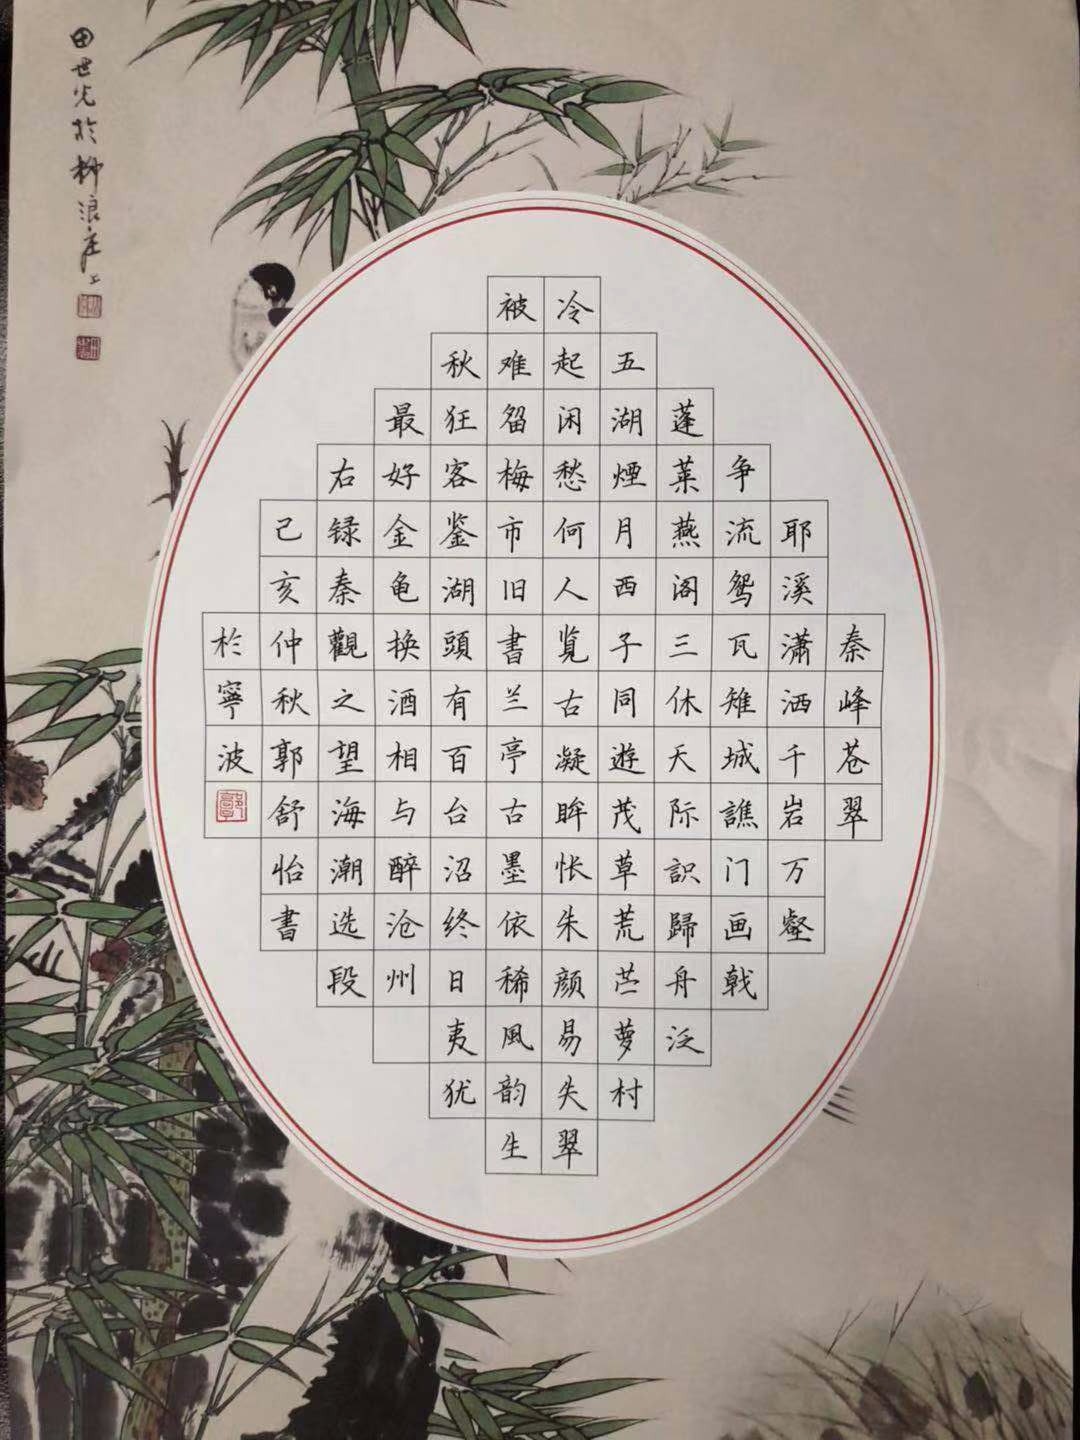 田世光於柳浪庄上
秦峰苍翠
耶溪潇洒千岩万壑
争流鸳瓦雉城譙门画戟
蓬莱燕阁三休天际識歸舟泛
五湖煙月西子同遊茂草荒苎萝村
冷起闲愁何人览古凝眸怅朱颜易失翠
被难留梅市旧書兰亭古墨依稀風韵生
秋狂客鉴湖頭有百台沼终日夷犹
最好金龟换酒相与醉沧州
右録秦觀之望海潮选段
己亥仲秋郭舒怡書
於寧波